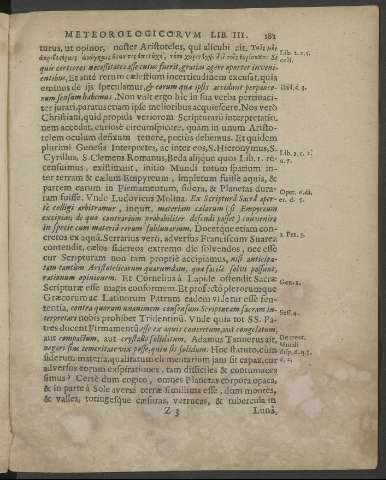 METEOROLOGICORVM LIB III. 181
turus, ut opinor, noster Aristoteles, qui alicubi ait. Τοῖς μὲν
quis certiores necessitates assecutus fuerit, gratias agere oportet inveni-
entibus, Et ante rerum cælestium incertitudinem excusat, quia
eminus de ijs speculamur, & earum quæ ipsis accidunt perpauco-
rum sensum habemus. Non vult ergo hic in sua verba pertinaci-
ter jurari, paratus etiam ipse melioribus acquiescere. Nos verò
Christiani, quid propiùs veriorem Scripturarū interpretatio-
nem accedat, curiosè circumspicere, quàm in unum Aristo-
telem oculum defixum tenere, potiùs debemus. Et quidem
plurimi Genesis Interpretes, ac inter eos, S. Hieronymus, S.
Cyrillus, S. Clemens Romanus, Beda alijque quos Lib. 1. re-
censuimus, existimant, initio Mundi totum spatium in-
ter terram & cælum Empyreum, impletum fuisse aquis, &
partem earum in Firmamentum, sidera, & Planetas dura-
tam fuisse. Vnde Ludovicus Molina. Ex Scripturâ Sacrâ aper-
tè colligi arbitramur, inquit, materiam cælorum (si Empyreum
excipias, de quo contrarium probabiliter defendi posset) convenire
in specie cum materiâ rerum sublunarium. Docetque etiam con-
cretos ex aquâ. Serrarius verò, adversùs Franciscum Suarez
contendit, cælos sidereos extremo die solvendos, nec esse
cur Scripturam non tam propriè accipiamus, nisi anticipa-
tam tantùm Aristotelicarum quarumdam, quæ facilè solvi possunt,
rationum opinionem. Et Cornelius à Lapide ostendit Sacræ
Scripturæ esse magis conformem. Et profectò plerorumque
Græcorum ac Latinorum Patrum eadem videtur esse sen-
tentia, contra quorum unanimem consensum Scripturam sacram in-
terpretari nobis prohibet Tridentinū. Vnde quia tot SS. Pa-
tres docent Firmamentū esse ex aquis concretum, aut congelatum,
aut compactum, aut crystallo solidatum, Adamus Tannerus ait,
negari sine temeritate vix posse, quin sit solidum. Hoc statuto, cùm
siderum materia, qualitatum elementarium jam sit capax, cur
adversùs eorum exspirationes, tam difficiles & contumaces
simus? Certè dum cogito, omnes Planetas corpora opaca,
& in parte à Sole aversâ terræ simillima esse, dum montes,
& valles, totiugesque cæsuras, verrucas, & tubercula in
Z 3 Lunâ,
Lib. 2. t. 6.
cæli.
Ibid. c. 3.
Lib. 2. c. 1.
n. 7.
Oper. 6. dd.
er. d. 5.
2. Pet. 3.
Gen. 1.
Sess. 4.
De creat.
Mundi
disp. 6. q. 3.
d. 2.